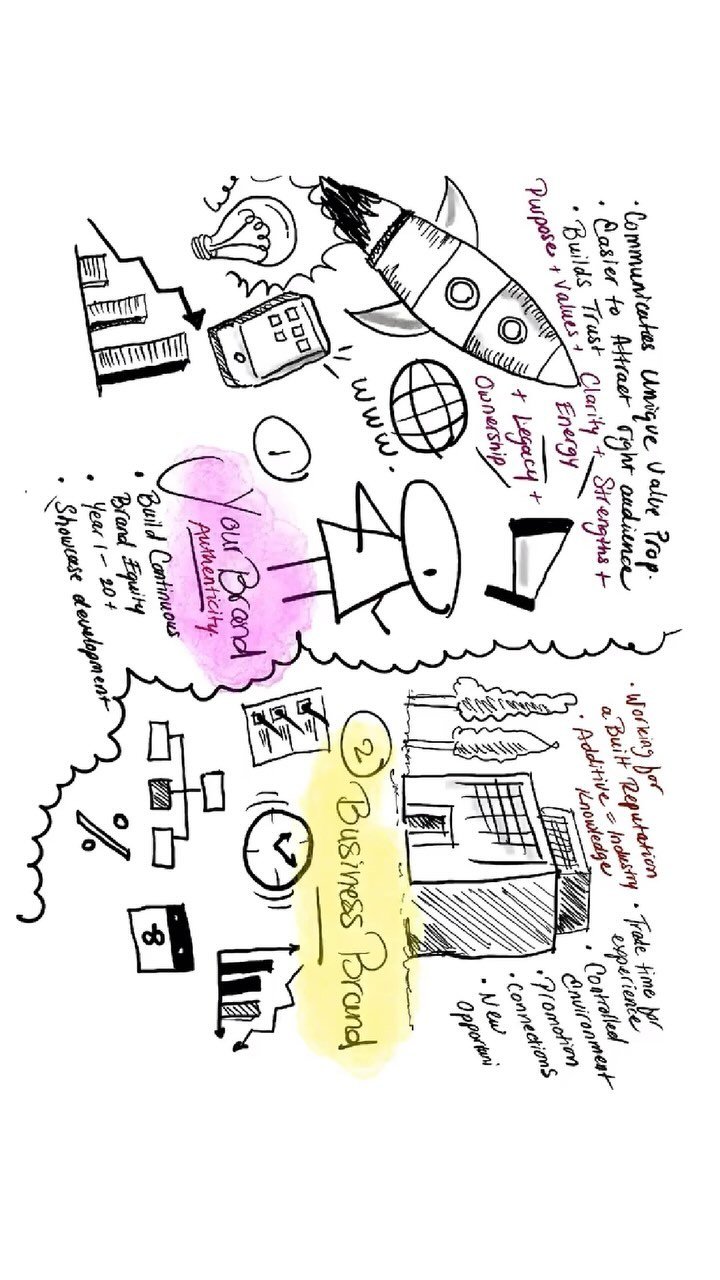 • Communicates Unique Value Prop.
• Easier to Attract right audience
• Builds Trust
Purpose + Values + Clarity + Strengths +
Energy
+ Legacy +
Ownership
www.
1
Your Brand
Authenticity
• Build Continuous
Brand Equity
• Year 1 - 20 +
• Showcase development
• Working for
a Built Reputation
• Additive = Industry
Knowledge
• Trade time for
experience
• Controlled
Environment
• Promotion
• Connections
• New
Opportuni
2 Business Brand
%
8